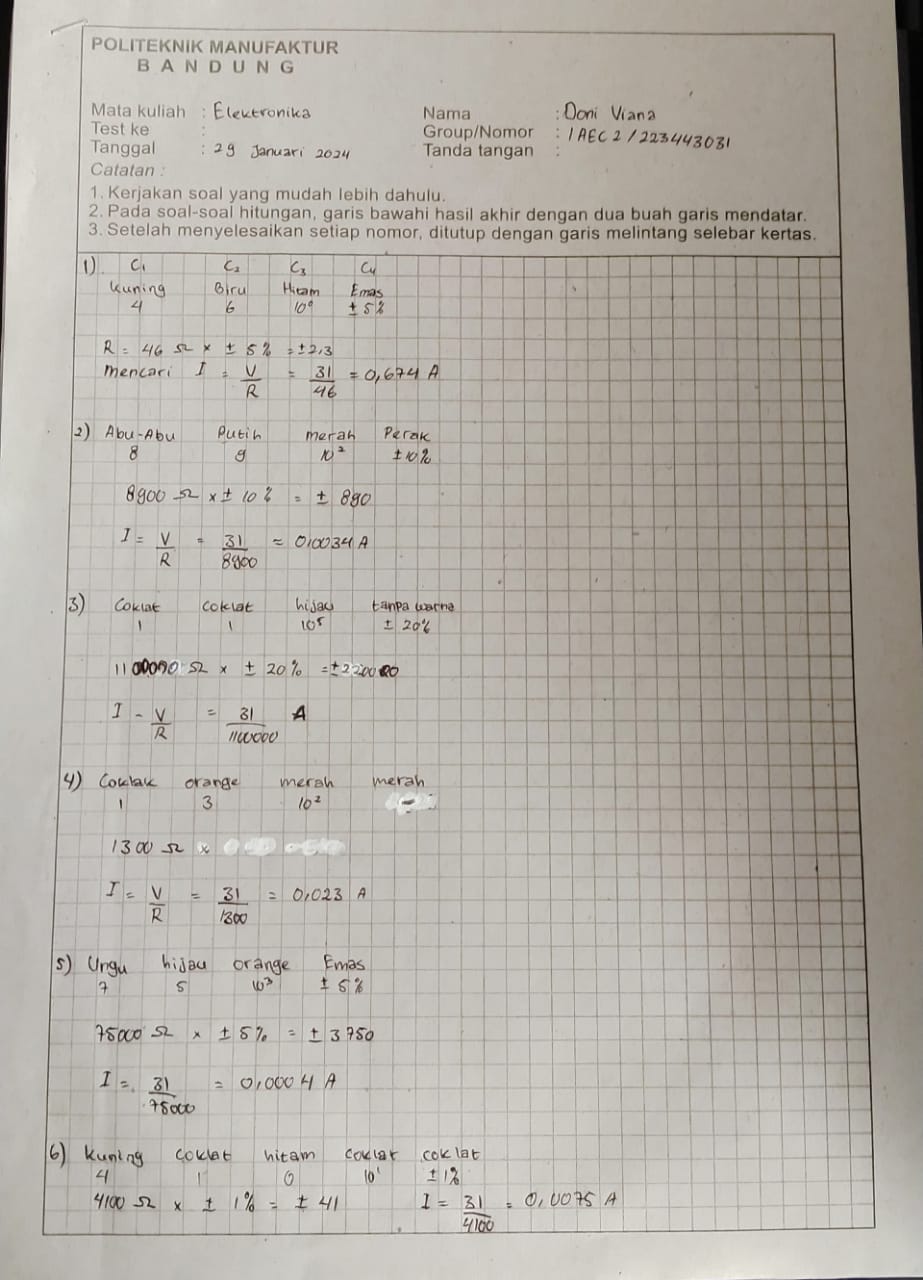 POLITEKNIK MANUFAKTUR
BANDUNG
Mata kuliah : Elektronika
Nama : Doni Viana
Test ke :
Group/Nomor : 1AEC2/223443031
Tanggal : 29 Januari 2024
Tanda tangan :
Catatan :
1. Kerjakan soal yang mudah lebih dahulu.
2. Pada soal-soal hitungan, garis bawahi hasil akhir dengan dua buah garis mendatar.
3. Setelah menyelesaikan setiap nomor, ditutup dengan garis melintang selebar kertas.
1) C₁ C₂ C₃ C₄
Kuning Biru Hitam Emas
4 6 10⁰ ± 5%
R = 46 Ω × ± 5% = ±2,3
Mencari I = V/R = 31/46 = 0,674 A
2) Abu-Abu Putih merah Perak
8 9 10² ±10%
8900 Ω × ± 10% = ± 890
I = V/R = 31/8900 = 0,0034 A
3) Coklat coklat hijau tanpa warna
1 1 10⁵ ± 20%
1100000 Ω × ± 20% = ±220000
I - V/R = 31/1100000 A
4) Coklak orange merah merah
1 3 10²
1300 Ω ×
I = V/R = 31/1300 = 0,023 A
5) Ungu hijau orange Emas
7 5 10³ ± 5%
75000 Ω × ± 5% = ± 3750
I = 31/75000 = 0,0004 A
6) Kuning Coklat hitam Coklat coklat
4 1 0 10¹ ± 1%
4100 Ω × ± 1% = ± 41 I = 31/4100 = 0,0075 A